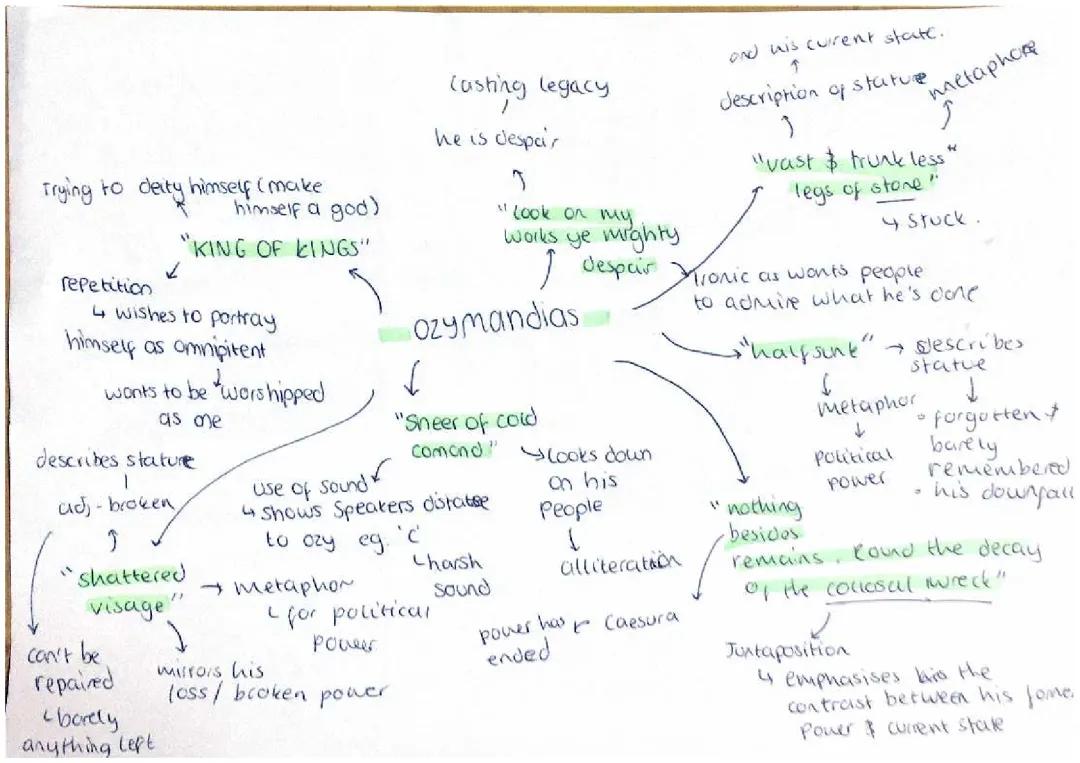 and his current state.
description of stature
metaphore
"vast & trunkless"
legs of stone"
↳ stuck.
Lasting legacy
he is despair
"Look on my
works ye mighty
despair
Ironic as wants people
to admire what he's done
Trying to deity himself (make
himself a god)
"KING OF KINGS"
repetition
↳ wishes to portray
himself as omnipitent
wants to be worshipped
as one
ozymandias
"half sunk" → describes
statue
metaphor
political
power
• forgotten +
barely
remembered
• his downfall
"Sneer of cold
comand"
Looks down
on his
people
alliteration
use of sound
↳ shows speakers distatse
to ozy eg. 'c'
harsh
sound
describes stature
adj - broken
"shattered
visage"
→ metaphor
for political
power
mirrors his
loss / broken power
can't be
repaired
barely
anything left
"nothing
besides
remains. Round the decay
of the collosal wreck"
caesura
power has
ended
Juxtaposition
↳ emphasises the
contrast between his forme
power & current state